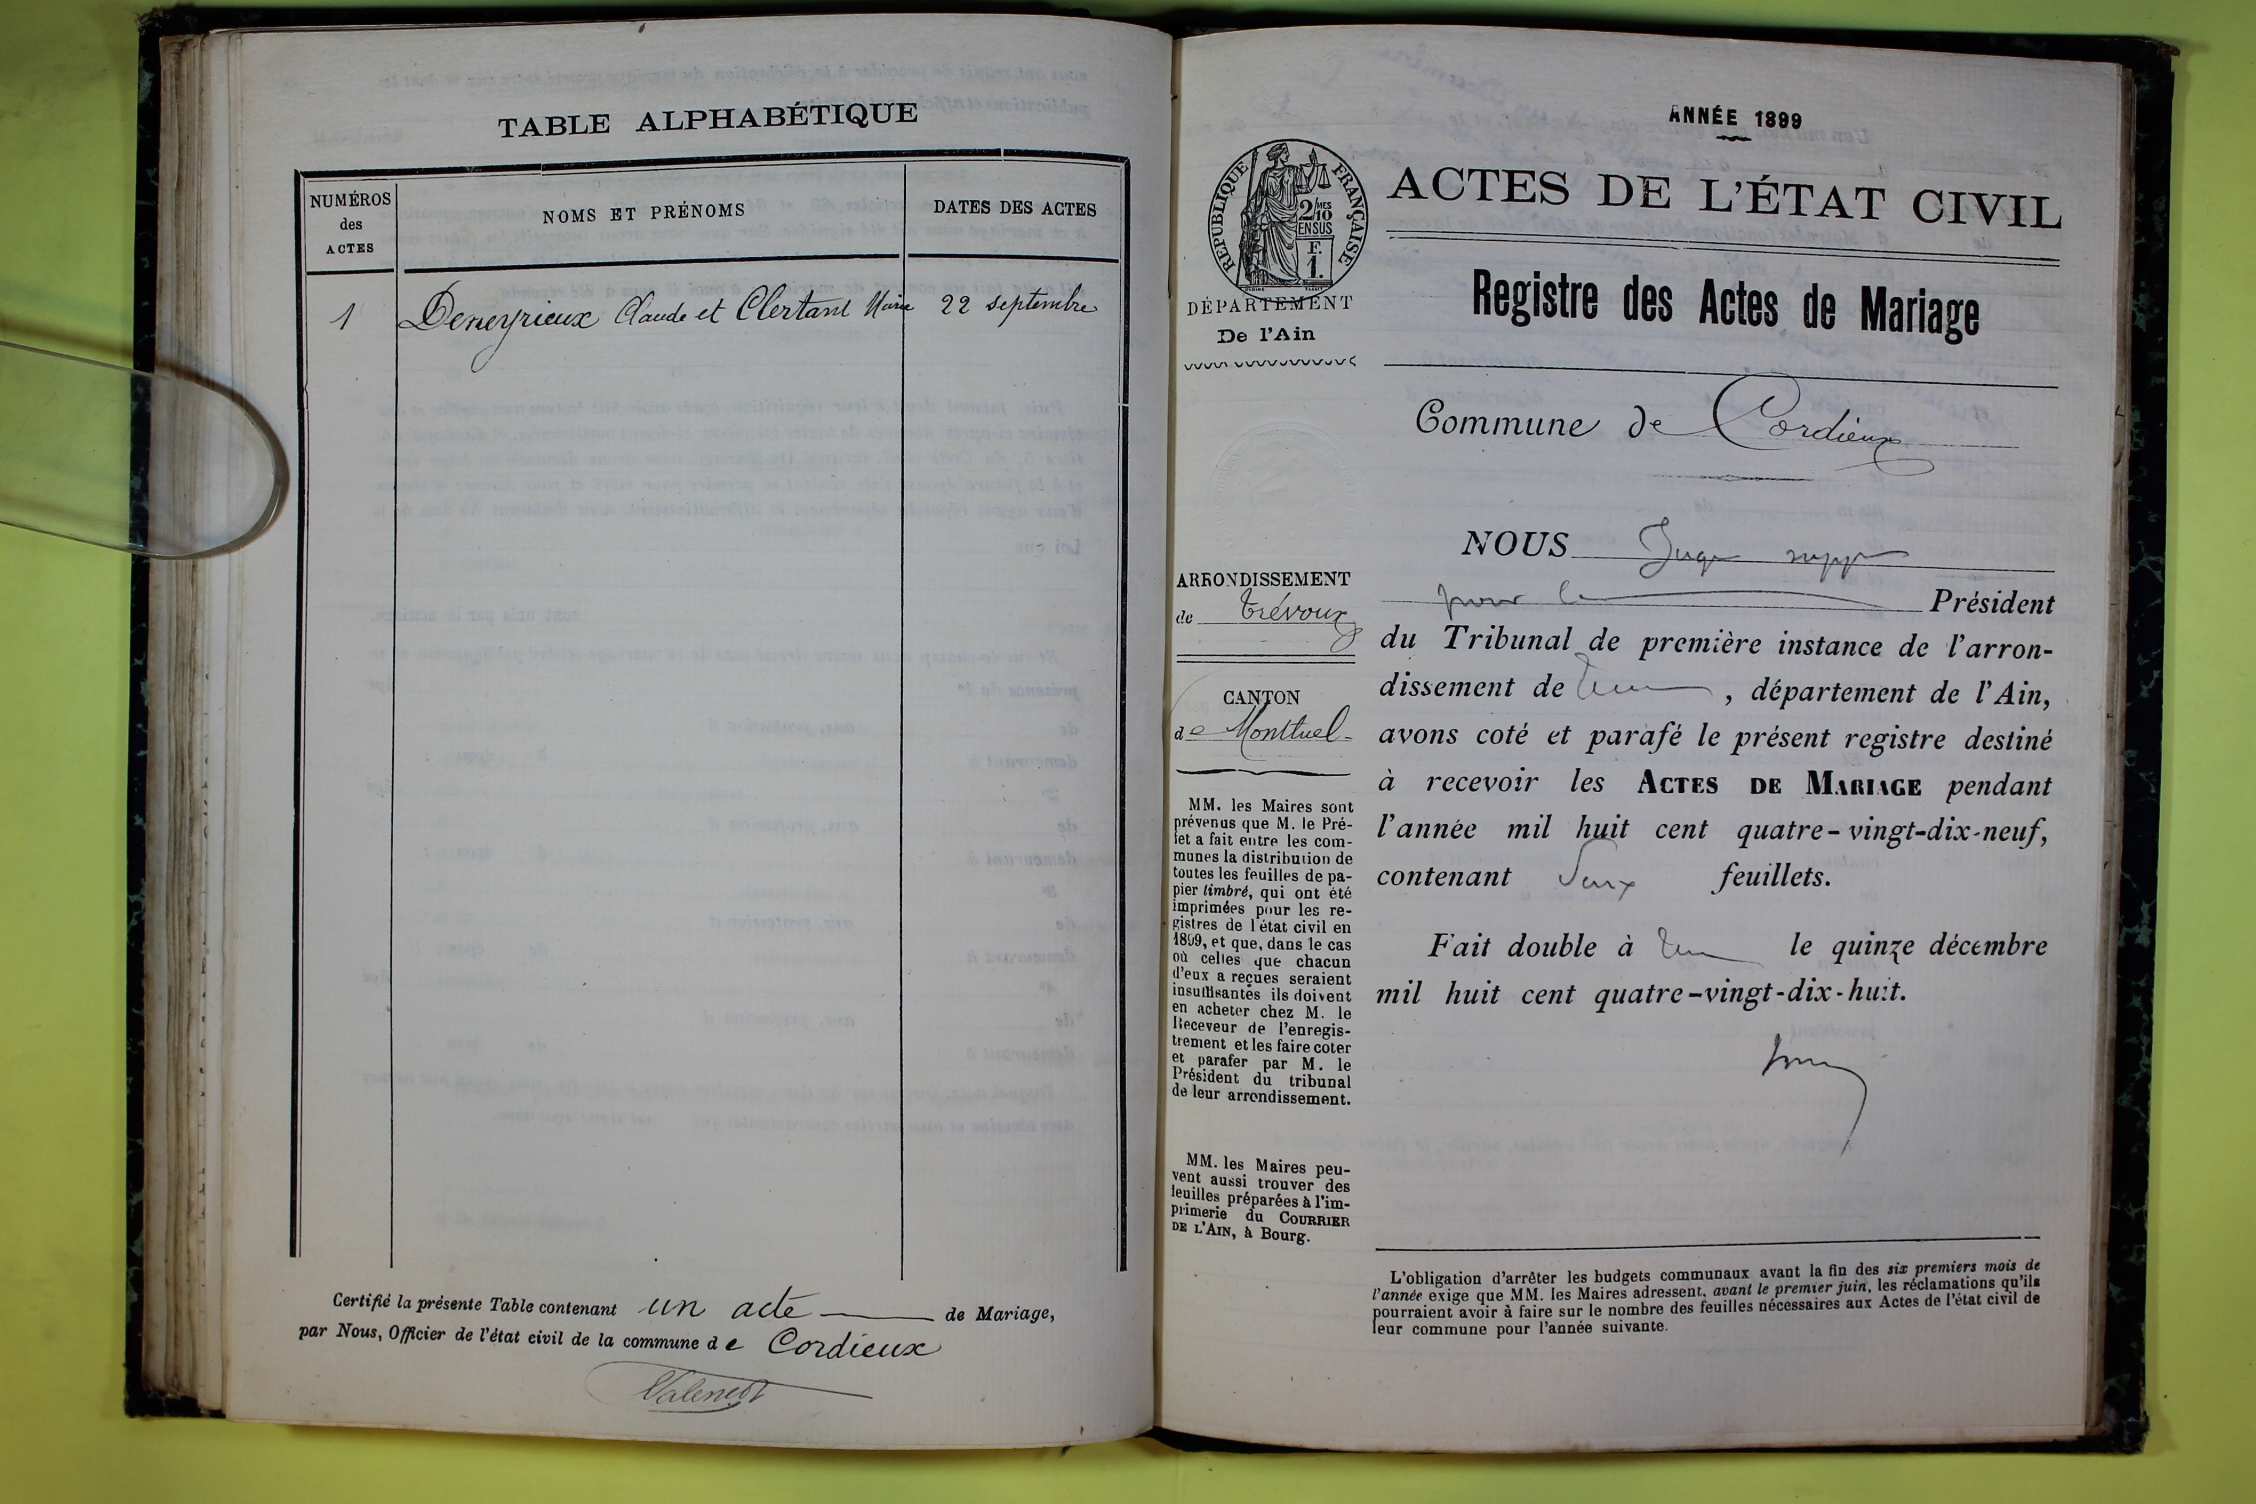 TABLE ALPHABÉTIQUE
NUMÉROS
des
ACTES
NOMS ET PRÉNOMS
DATES DES ACTES
1 Deneyrieux Claude et Clertant Marie 22 septembre
Certifié la présente Table contenant un acte de Mariage,
par Nous, Officier de l'état civil de la commune de Cordieux
ANNÉE 1899
RÉPUBLIQUE FRANÇAISE
2/10 MES
EN SUS
F.
1.
DÉPARTEMENT
De l'Ain
ARRONDISSEMENT
de Trévoux
CANTON
de Montluel
MM. les Maires sont
prévenus que M. le Pré-
fet a fait entre les com-
munes la distribution de
toutes les feuilles de pa-
pier timbré, qui ont été
imprimées pour les re-
gistres de l'état civil en
1899, et que, dans le cas
où celles que chacun
d'eux a reçues seraient
insuffisantes ils doivent
en acheter chez M. le
Receveur de l'enregis-
trement et les faire coter
et parafer par M. le
Président du tribunal
de leur arrondissement.
MM. les Maires peu-
vent aussi trouver des
feuilles préparées à l'im-
primerie du COURRIER
DE L'AIN, à Bourg.
ACTES DE L'ÉTAT CIVIL
Registre des Actes de Mariage
Commune de Cordieux
NOUS Juge supp
pour le Président
du Tribunal de première instance de l'arron-
dissement de , département de l'Ain,
avons coté et parafé le présent registre destiné
à recevoir les ACTES DE MARIAGE pendant
l'année mil huit cent quatre-vingt-dix-neuf,
contenant deux feuillets.
Fait double à le quinze décembre
mil huit cent quatre-vingt-dix-huit.
L'obligation d'arrêter les budgets communaux avant la fin des six premiers mois de
l'année exige que MM. les Maires adressent, avant le premier juin, les réclamations qu'ils
pourraient avoir à faire sur le nombre des feuilles nécessaires aux Actes de l'état civil de
leur commune pour l'année suivante.